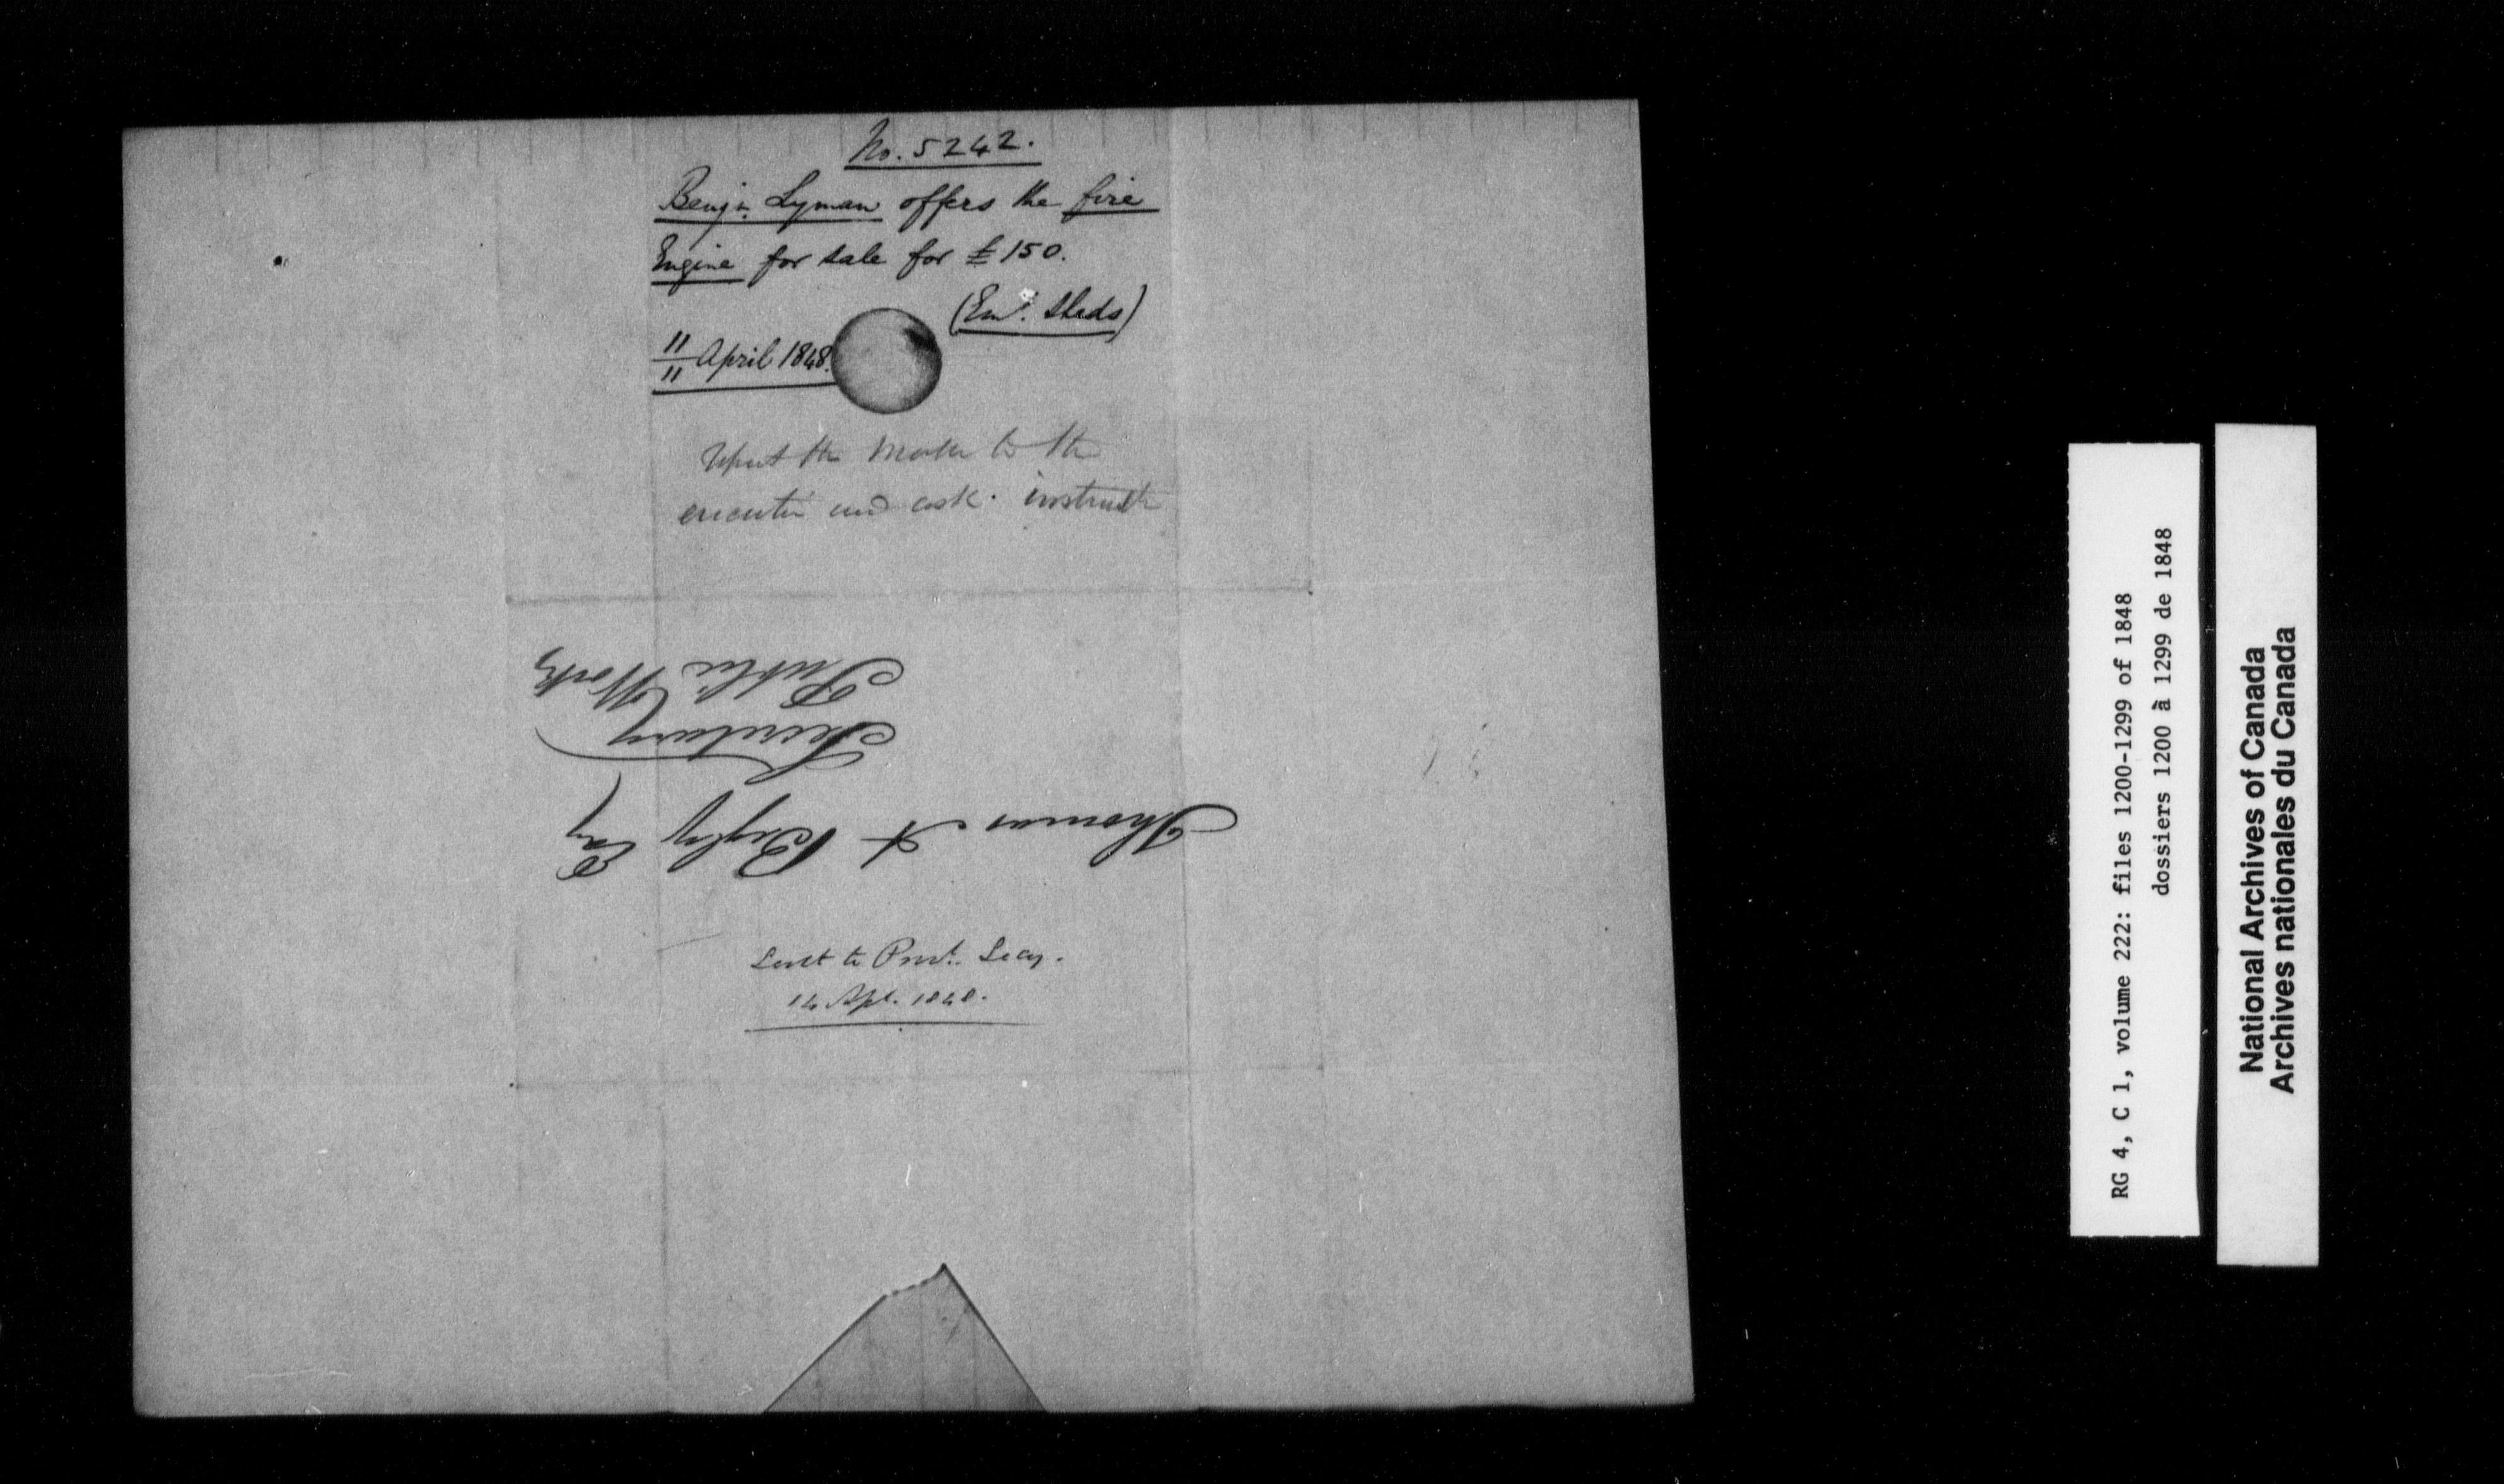 No. 5242.
Benjn. Lyman offers the fire
Engine for sale for £150.
(Emt. Sheds)
11/11 April 1848.
Report the matter to the
executive and ask. instruct
Thomas A Begly Esq
Secretary
Public Works
Sent to Provl. Secy.
14 Apl. 1848.
RG 4, C 1, volume 222: files 1200-1299 of 1848
dossiers 1200 à 1299 de 1848
National Archives of Canada
Archives nationales du Canada